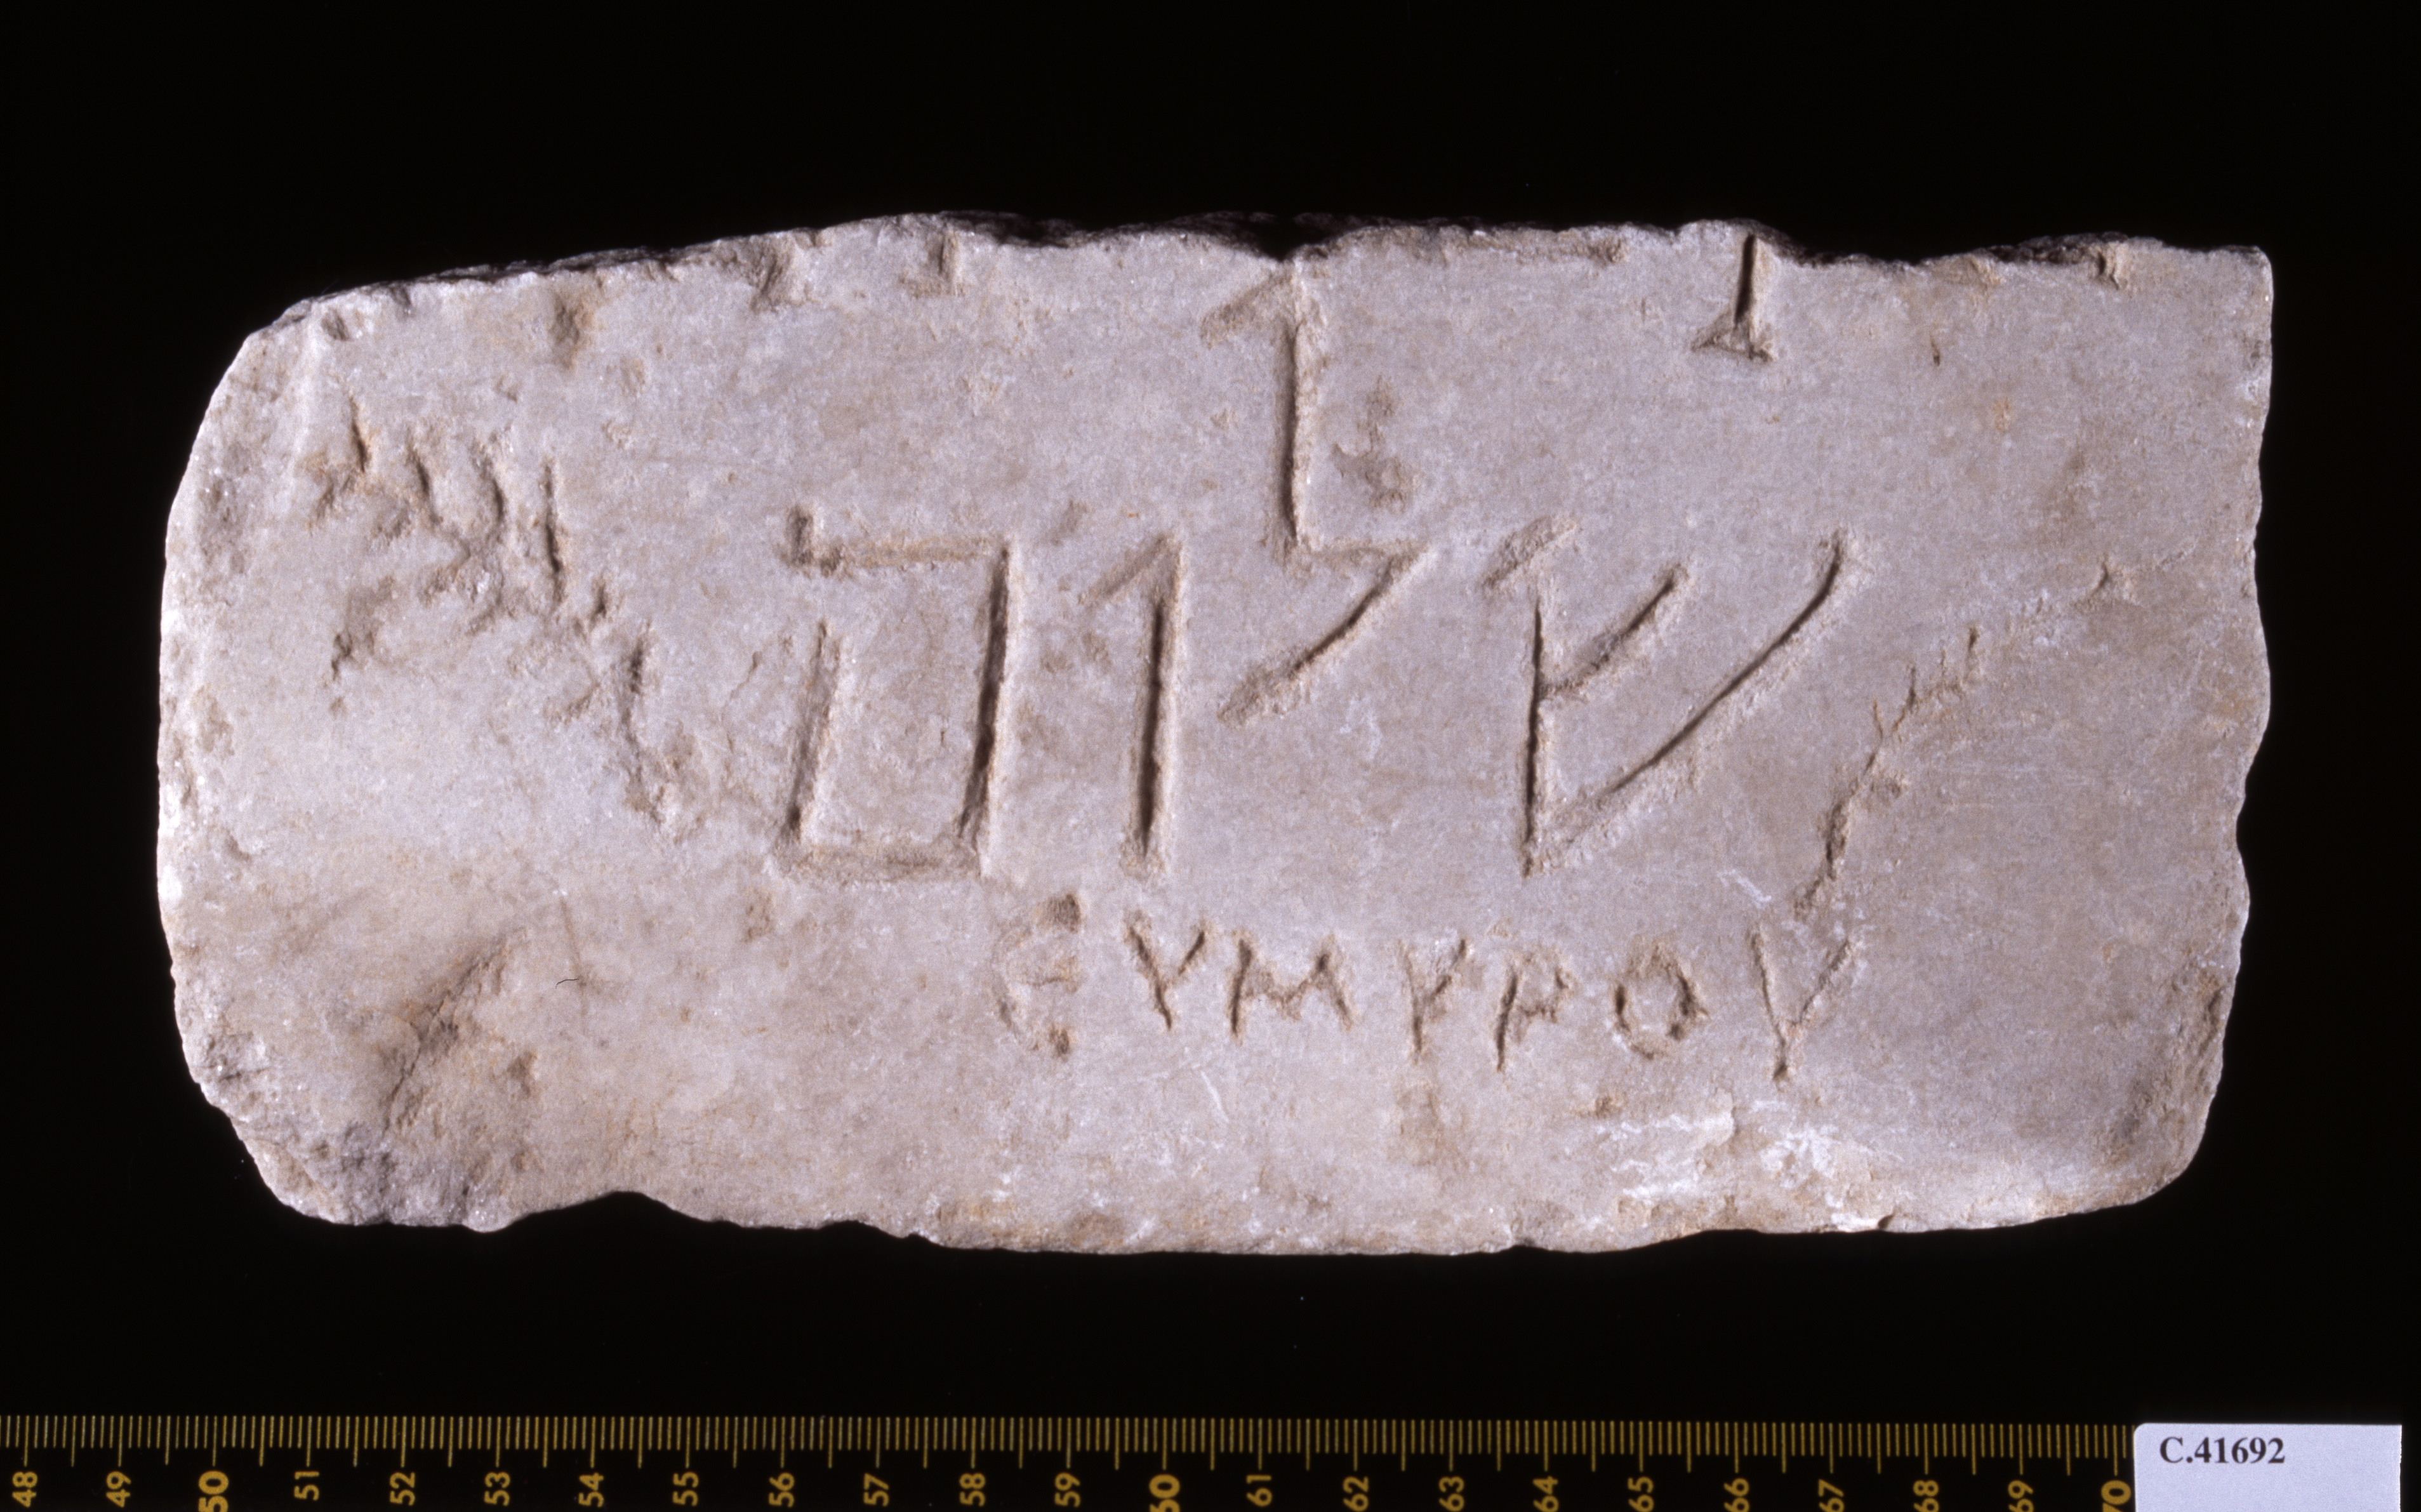 שלום
ЄΥΜΥΡΟΥ
48 49 50 51 52 53 54 55 56 57 58 59 60 61 62 63 64 65 66 67 68 69 70
C.41692